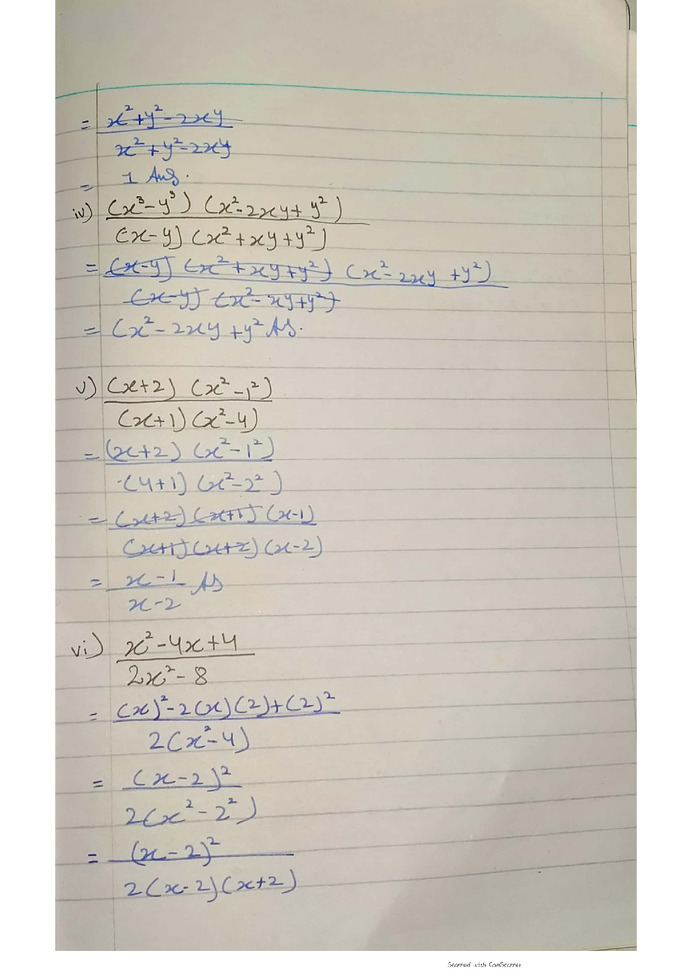 = x²+y²-2xy
x²+y²-2xy
= 1 Ans.
iv) (x³-y³) (x²-2xy+y²)
(x-y) (x²+xy+y²)
= (x-y) (x²+xy+y²) (x²-2xy+y²)
(x-y) (x²-xy+y²)
= (x²-2xy+y² As.
v) (x+2) (x²-1²)
(x+1) (x²-4)
= (x+2) (x²-1²)
(4+1) (x²-2²)
= (x+2) (x+1) (x-1)
(x+1) (x+2) (x-2)
= x-1 As
x-2
vi) x²-4x+4
2x²-8
= (x)²-2(x)(2)+(2)²
2(x²-4)
= (x-2)²
2(x²-2²)
= (x-2)²
2(x-2)(x+2)
Scanned with CamScanner